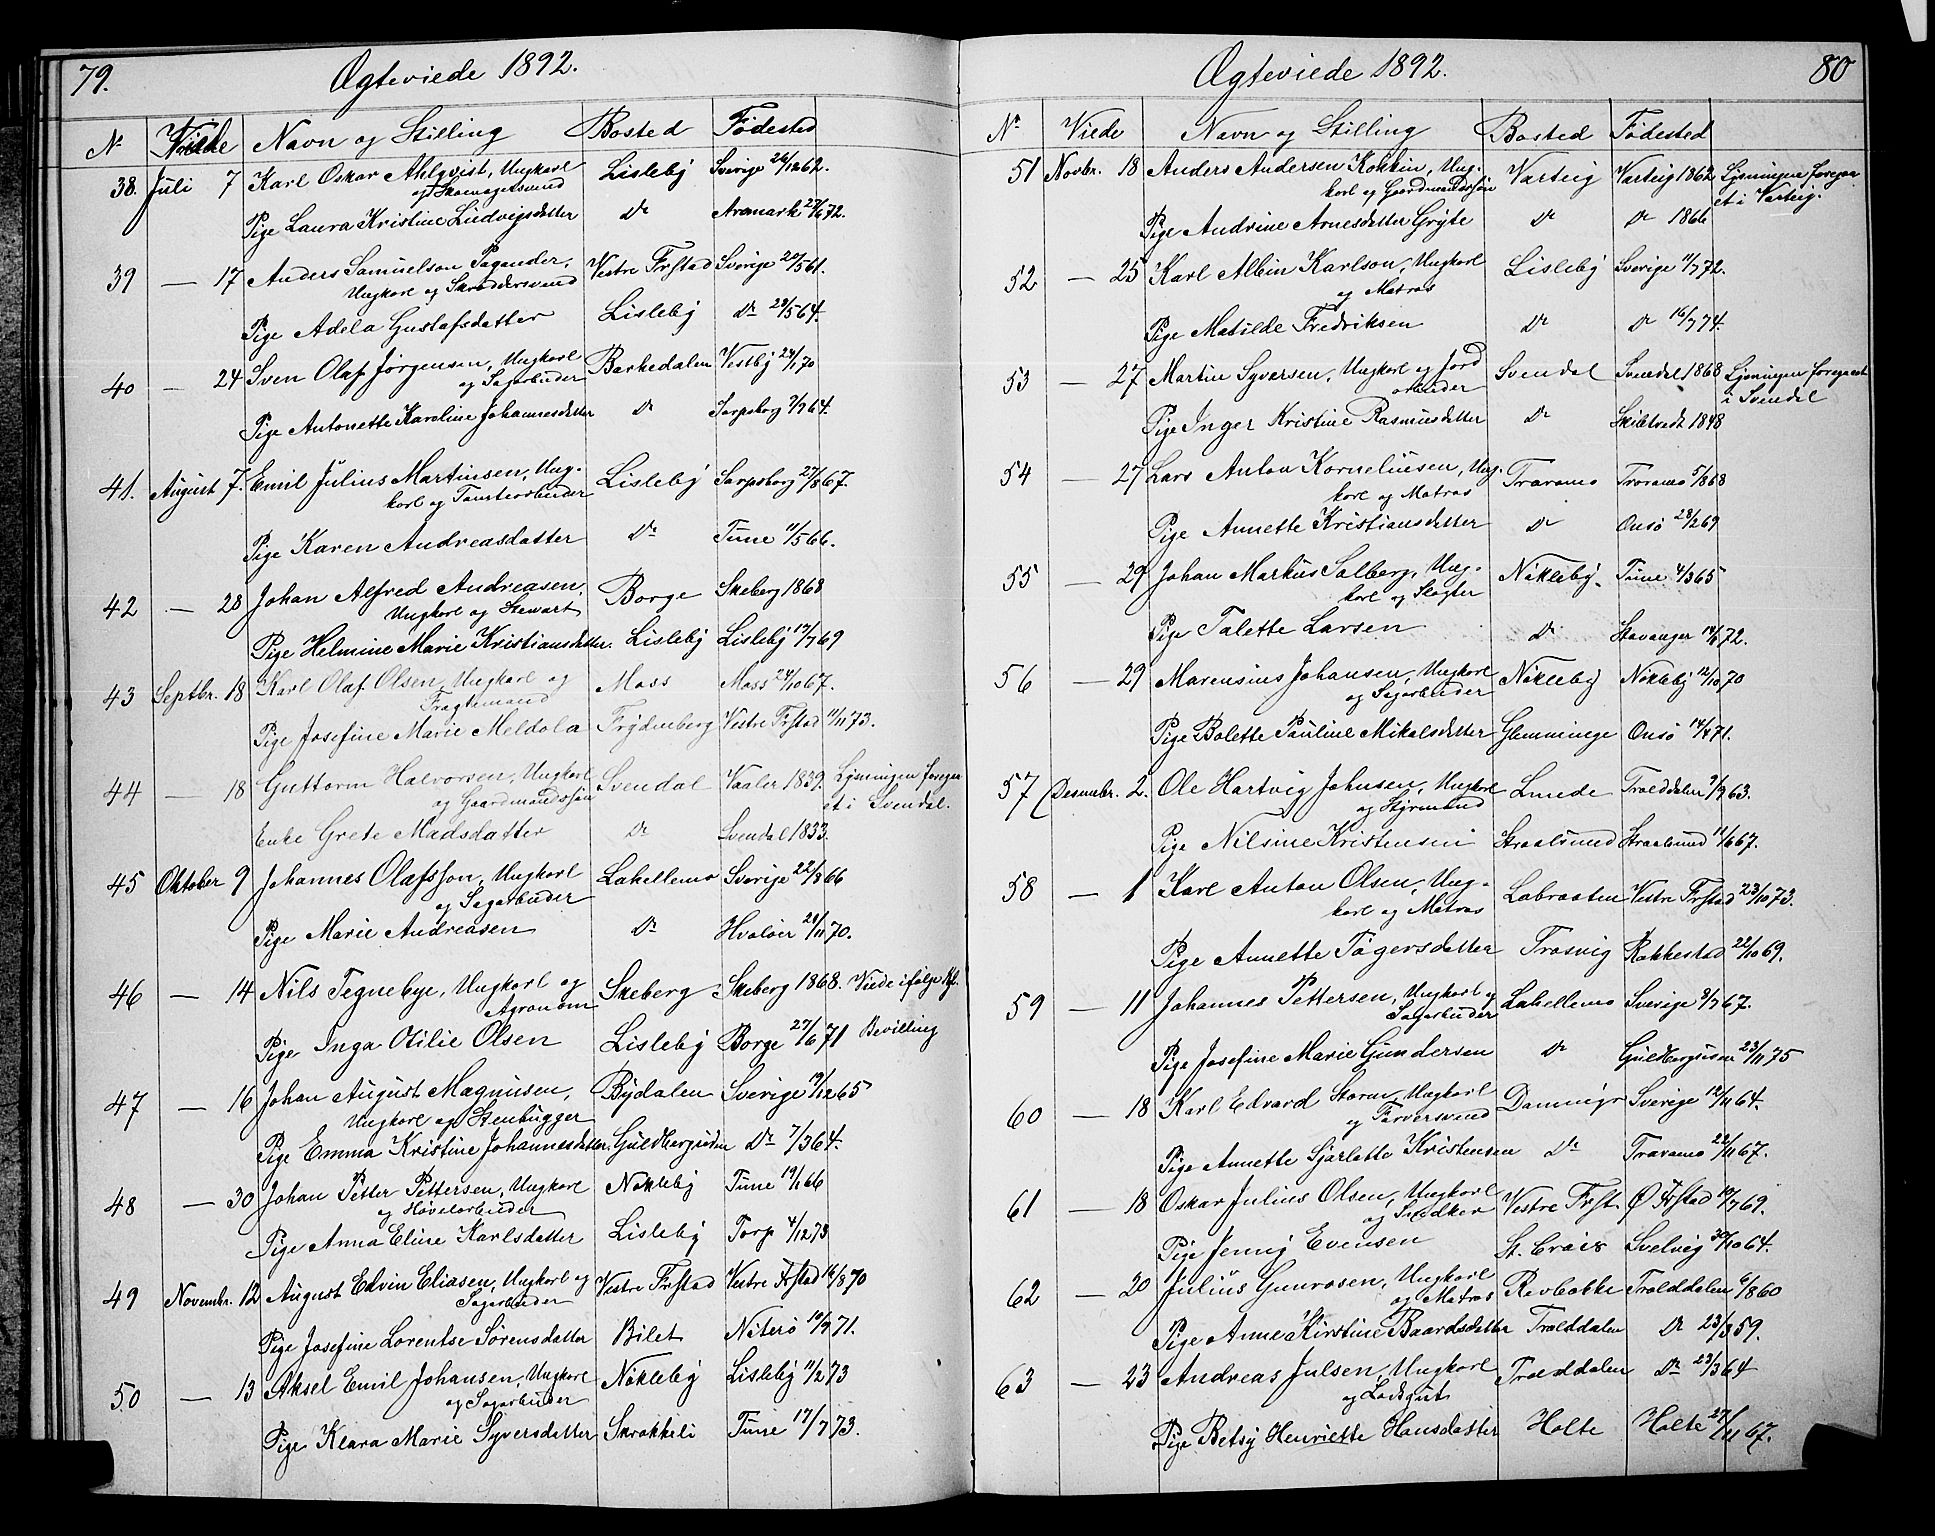 79.
Ægteviede 1892.
N. Viede Navn og Stilling Bosted Fødested
38. Juli 7 Karl Oskar Ahlqvist, Ungkarl Lisleby Sverige 26/12 62.
og Skomagersvend
Pige Laura Kristine Ludvigsdatter Do Aremark 27/6 72.
39 — 17 Anders Samuelson Pagander, Vestre Frstad Sverige 20/5 61.
Ungkarl og Skræddersvend
Pige Adela Gustafsdatter Lisleby Do 29/5 64.
40 — 24 Sven Olaf Jørgensen, Ungkarl Barkedalen Vestby 24/1 70
og Sagarbeider
Pige Antonette Karoline Johannesdatter Do Sarpsborg 2/7 64.
41. August 7. Emil Julius Martinsen, Ung- Lisleby Sarpsborg 27/8 67.
karl og Tomtearbeider
Pige Karen Andreasdatter Do Tune 11/5 66.
42 — 28 Johan Alfred Andreasen, Borge Skeberg 1868
Ungkarl og Stewart
Pige Helmine Marie Kristiansdatter. Lisleby Lisleby 17/7 69
43 Septbr. 18 Karl Olaf Olsen, Ungkarl og Moss Moss 24/10 67.
Fragtemand
Pige Josefine Marie Meldola Frydenberg Vestre Frstad 11/11 73.
44 — 18 Guttorm Halvorsen, Ungkarl Svendal Vaaler 1839. Lysningen foregaa-
og Gaardmandssøn et i Svendal.
Enke Grete Madsdatter Do Svendal 1833.
45 Oktober 9 Johannes Olafsson, Ungkarl Lahellemo Sverige 22/8 66
og Sagarbeider
Pige Marie Andreasen Do Hvaløer 21/11 70.
46 — 14 Nils Tegnebye, Ungkarl og Skeberg Skeberg 1868. Viede ifølge Kgl.
Agronom
Pige Inga Otilie Olsen Lisleby Borge 27/6 71 Bevilling
47 — 16 Johan August Magnusen, Bydalen Sverige 19/12 65
Ungkarl og Stenhugger
Pige Emma Kristine Johannesdatter. Guldbergsiden Do 7/3 64.
48 — 30 Johan Petter Pettersen, Ungkarl Nøkleby Tune 19/1 66
og Høvelarbeider
Pige Anna Eline Karlsdatter Lisleby Torp 4/12 73
49 Novembr. 12 August Edvin Eliasen, Ungkarl og Vestre Frstad Vestre Frstad 16/8 70
Sagarbeider
Pige Josefine Lorentse Sørensdatter Bilet Niterø 10/9 71.
50 — 13 Aksel Emil Johansen, Ungkarl Nøkleby Lisleby 11/2 73
og Sagarbeider
Pige Klara Marie Syversdatter Skrakkeli Tune 17/7 73.
Ægteviede 1892.
80
No Viede Navn og Stilling Bosted Fødested
51 Novbr. 18 Anders Andersen Kokkin, Ung- Varteig Varteig 1862 Lysningen foregaa-
karl og Gaardmandssøn et i Varteig.
Pige Andrine Arnesdatter Gryte Do Do 1866
52 — 25 Karl Albin Karlson, Ungkarl Lisleby Sverige 11/7 72.
og Matros
Pige Matilde Fredriksen Do Do 16/7 74.
53 — 27 Martin Syversen, Ungkarl og Jord Svendal Svendal 1868 Lysningen foregaaet
arbeider i Svendal
Pige Inger Kristine Rasmusdatter Do Skibtvedt 1848
54 — 27 Lars Anton Korneliusen, Ung- Traramo Traramo 5/8 68
karl og Matros
Pige Annette Kristiansdatter Do Onsø 28/2 69
55 — 29 Johan Markus Solberg, Ung- Nøkleby. Tune 4/3 65
karl og Slagter
Pige Talette Larsen Do Stavanger 14/6 72.
56 — 29 Marensius Johansen, Ungkarl Nøkleby Nøkleby 12/10 70
og Sagarbeider
Pige Bolette Pauline Mikalsdatter Glemminge Onsø 14/4 71.
57 Desembr. 2. Ole Hartvig Johnsen, Ungkarl Lunde Trælddalen 9/9 63.
og Styrmand
Pige Nilsine Kristensen Straalsund Straalsund 11/6 67.
58 — 1 Karl Anton Olsen, Ung- Labraaten Vestre Frstad 23/10 73.
karl og Matros
Pige Annette Tøgersdatter Trosvig Rakkestad 22/10 69.
59 — 11 Johannes Pettersen, Ungkarl og Lahellemo Sverige 9/7 67.
Sagarbeider
Pige Josefine Marie Gundersen Do Guldbergsiden 23/11 75
60 — 18 Karl Edvard Storm, Ungkarl Dammyr Sverige 12/11 64.
og Farversvend
Pige Annette Sjarlotte Kristensen Do Traramo 22/11 67.
61 — 18 Oskar Julius Olsen, Ungkarl Vestre Frst. Ø Frstad 19/7 69.
og Snedker
Pige Jenny Evensen St. Croix Svelvig 30/10 64.
62 — 20 Julius Gunrosen, Ungkarl Revbakke Trælddalen 6/8 60
og Matros
Pige Anne Kirstine Baardsdatter Trælddalen Do 23/3 59.
63 — 23 Andreas Julsen, Ungkarl Trælddalen Do 23/3 64
og Lodsgut
Pige Betsy Henriette Hansdatter Holte Holte 27/11 67.